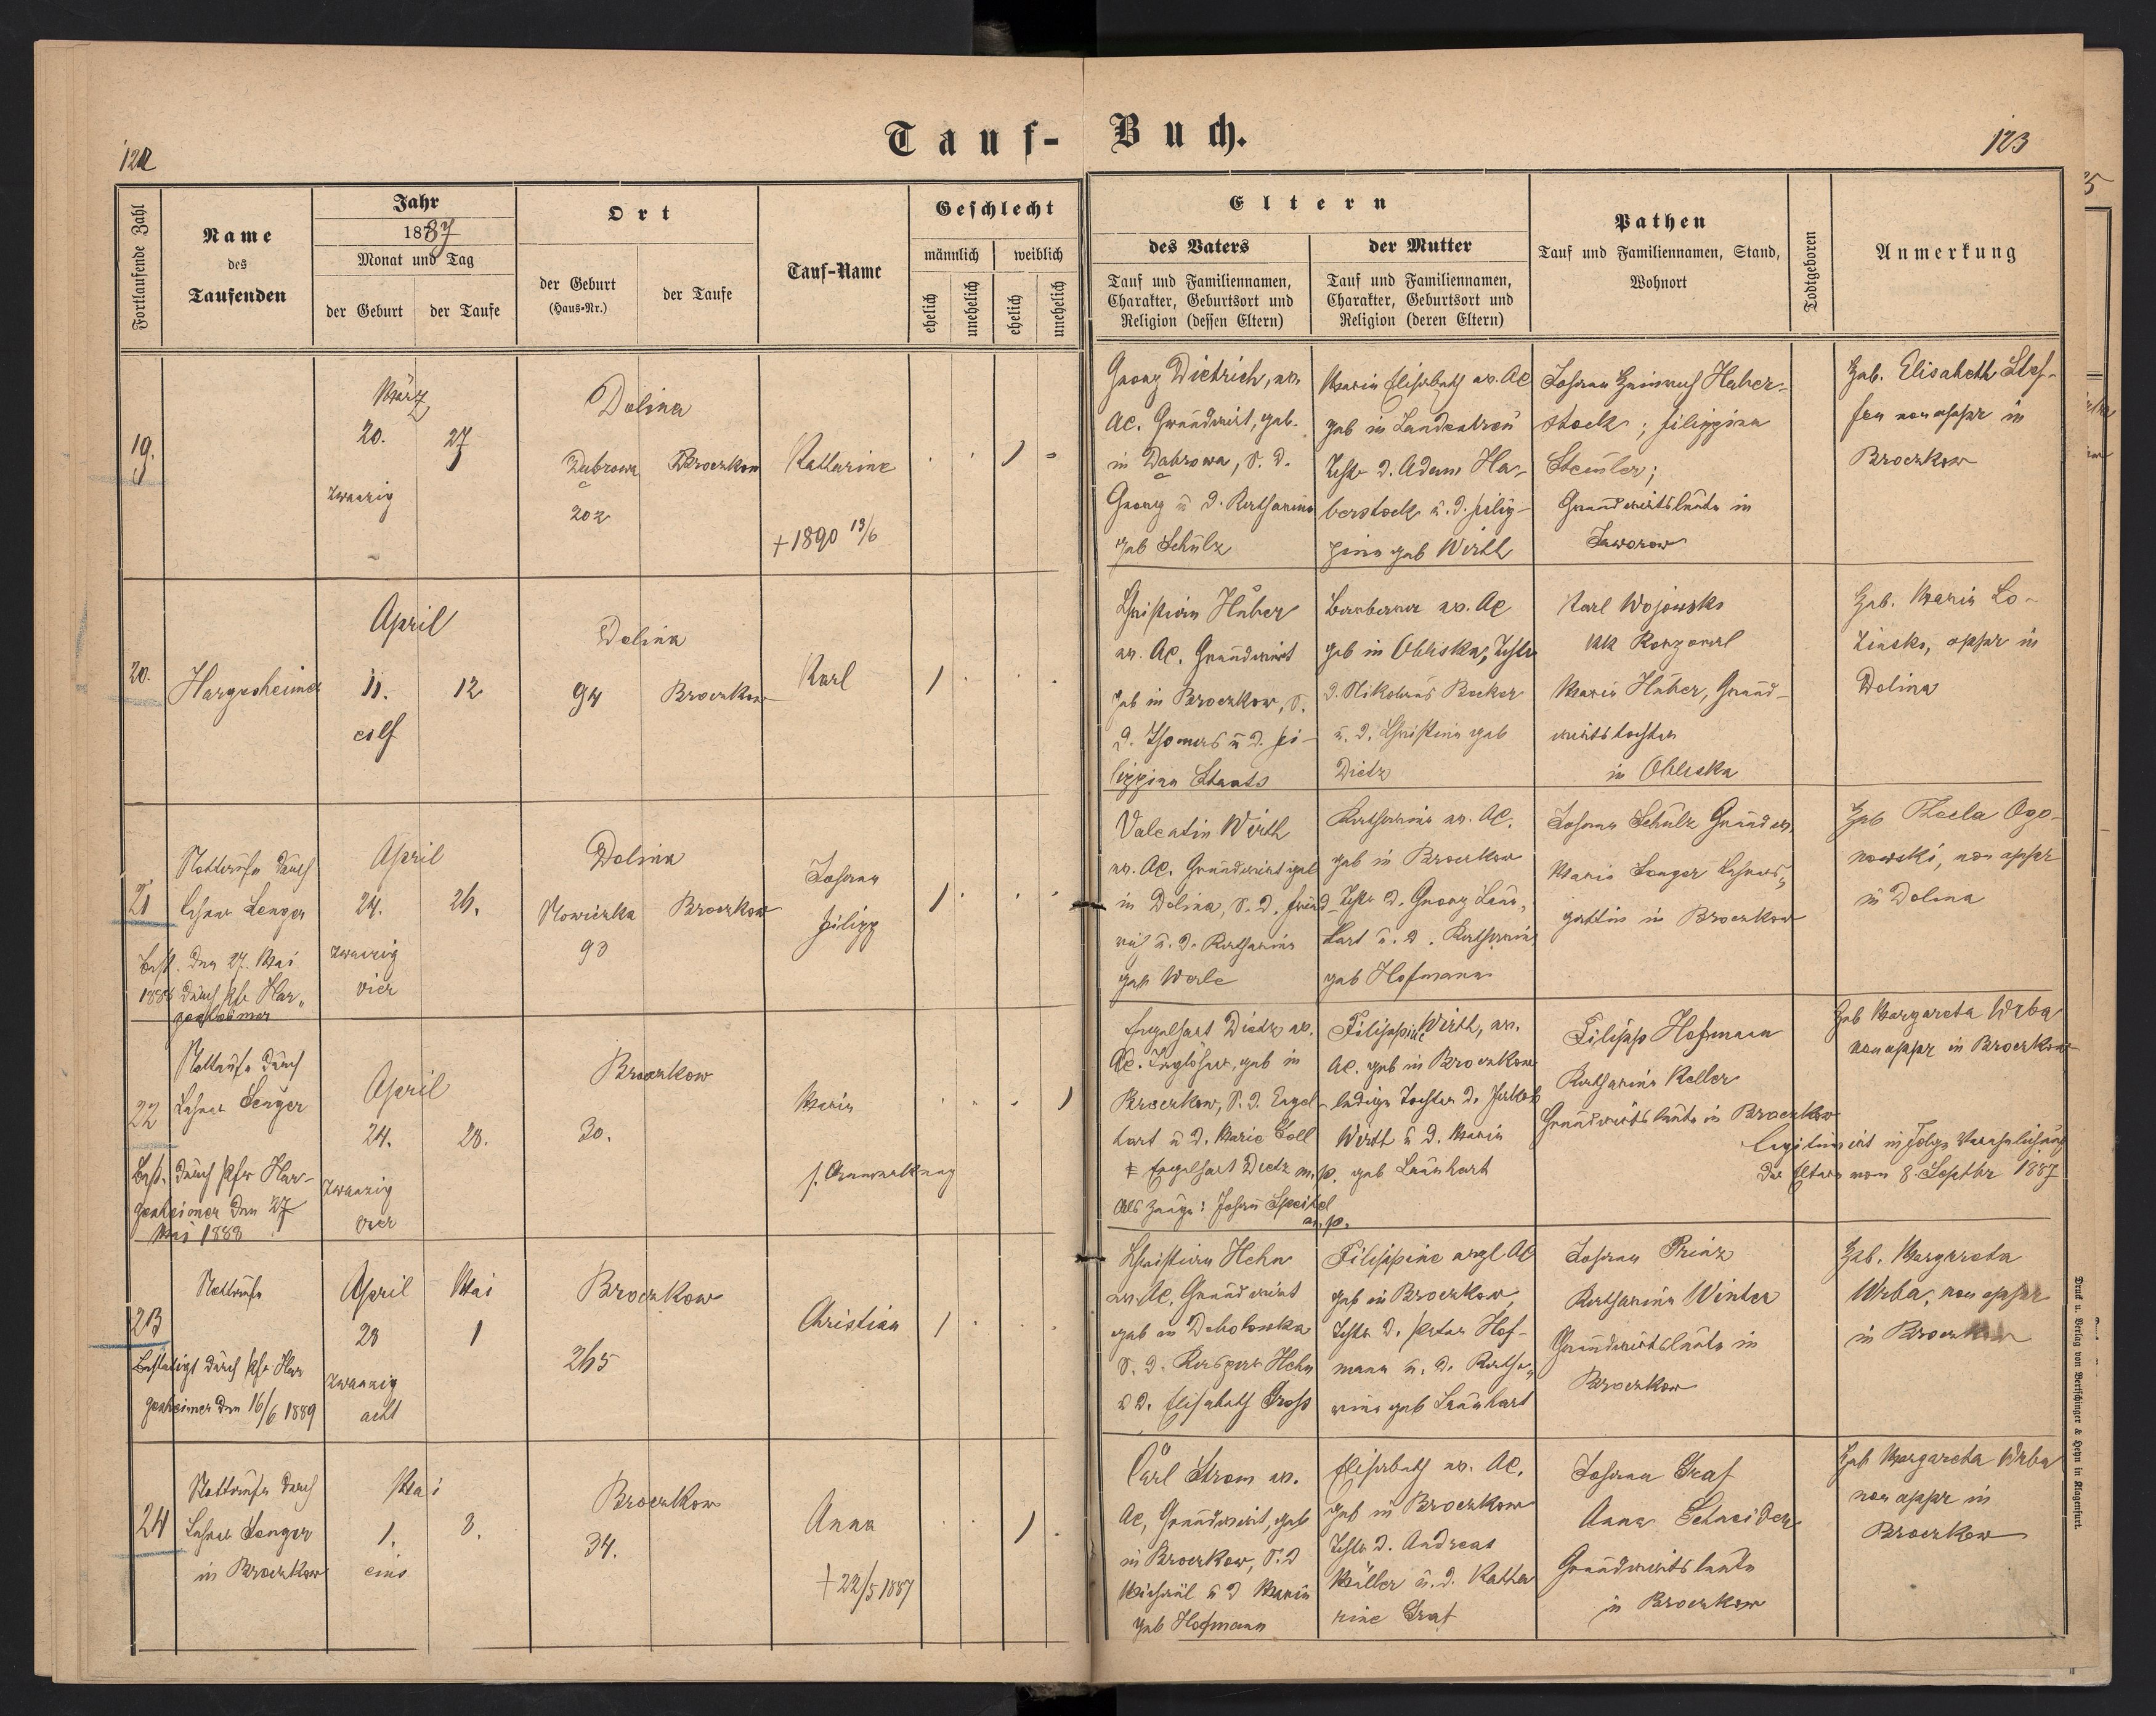 122
Tauf- Buch.
123
Fortlaufende Zahl
Name
des
Taufenden
Jahr
1887
Monat und Tag
der Geburt
der Taufe
Ort
der Geburt
(Haus-Nr.)
der Taufe
Tauf-Name
Geschlecht
männlich
weiblich
ehelich
unehelich
ehelich
unehelich
Eltern
des Vaters
Tauf und Familiennamen,
Charakter, Geburtsort und
Religion (dessen Eltern)
der Mutter
Tauf und Familiennamen,
Charakter, Geburtsort und
Religion (deren Eltern)
Pathen
Tauf und Familiennamen, Stand,
Wohnort
Todtgeboren
Anmerkung
19.
März
20.
27
zwanzig
Dolina
Dabrowa
202
Broczkow
Katharine
+ 1890 13/6
Georg Dietrich, ev.
AC. Grundwirt, geb.
in Dabrowa, S. d.
Georg u d. Katharina
geb Schulz
Maria Elisabeth ev. AC
geb in Landestreu
Tochtr d. Adam Ha-
berstock u. d. Filip-
pina geb Wirth
Johann Heinrich Haber-
stock; Filippina
Steuler;
Grundwirtsleute in
Jaworow
Heb. Elisabeth Stef-
fen non appr in
Broczkow
20.
Hargesheimer
April
11.
12
eilf
Dolina
94
Broczkow
Karl
Christian Huber
ev. AC. Grundwirt
geb in Broczkow, S.
d. Thomas u d. Fi-
lippina Staats
Barbara ev. AC
geb in Obliska, Tochtr
d. Nikolaus Becker
u. d. Christina geb
Dietz
Karl Wojowski
Maria Huber, Grund-
wirtstochter
in Obliska
Heb. Maria Lo-
zinski, appr in
Dolina
21
Nottaufe durch
Lehrer Senger
Best. den 27. Mai
1888 durch Pfr Har-
gesheimer
April
24.
26.
zwanzig
vier
Dolina
Nowiczka
93
Broczkow
Johann
Filipp
Valentin Wirth
ev. AC. Grundwirt geb
in Dolina, S. d. Fried-
rich u. d. Katharina
geb Werle
Katharina ev. AC.
geb in Broczkow
Tochtr d. Georg Leon-
hart u. d. Katharina
geb Hofmann
Johann Schulz Grundw.
Maria Senger Lehrers-
gattin in Broczkow
Heb Thecla Ogo-
nowski, non appr
in Dolina
22
Nottaufe durch
Lehrer Senger
Best. durch Pfr Har-
gesheimer den 27
Mai 1888
April
24.
28.
zwanzig
vier
Broczkow
30.
Maria
s. Anmerkung
Engelhart Dietz ev.
AC. Taglöhner, geb in
Broczkow, S. d. Engel-
hart u d. Marie Soll
Engelhart Dietz m.p.
als Zeuge: Johann Speitel
m.p.
Filippine Wirth, ev.
AC. geb in Broczkow
ledige Tochter d. Jakob
Wirth u d. Maria
geb Leonhart
Filipp Hofmann
Katharina Keller
Grundwirtsleute in Broczkow
Heb Margareta Wrba
non appr in Broczkow
legitimirt in Folge Verehelichung
der Eltern vom 8. Septbr 1887
23
Nottaufe
Bestätigt durch Pfr Har
gesheimer den 16/6 1889
April
Mai
28
1
zwanzig
acht
Broczkow
265
Christian
Christian Hehn
ev. AC. Grundwirt
geb in Debolowka
S. d. Kaspar Hehn
u d. Elisabeth Gross
Filippine evgl AC
geb in Broczkow,
Tochtr d. Peter Hof-
mann u. d. Katha-
rina geb Leonhart
Johann Prinz
Katharina Winter
Grundwirtsleute in
Broczkow
Heb. Margareta
Wrba, non appr
in Broczkow
24
Nottaufe durch
Lehrer Senger
in Broczkow
Mai
1.
3.
eins
Broczkow
34.
Anna
+ 22/5 1887
Carl Strom ev.
AC, Grundwirt, geb
in Broczkow, S. d
Michael u d Maria
geb Hofmann
Elisabeth ev. AC.
geb in Broczkow
Tochtr d. Andreas
Müller u. d. Katha
rine Graf
Johann Graf
Anna Schneider
Grundwirtsleute
in Broczkow
Heb Margareta Wrba
non appr in
Broczkow
Druck u. Verlag von Bertschinger & Heyn in Klagenfurt.